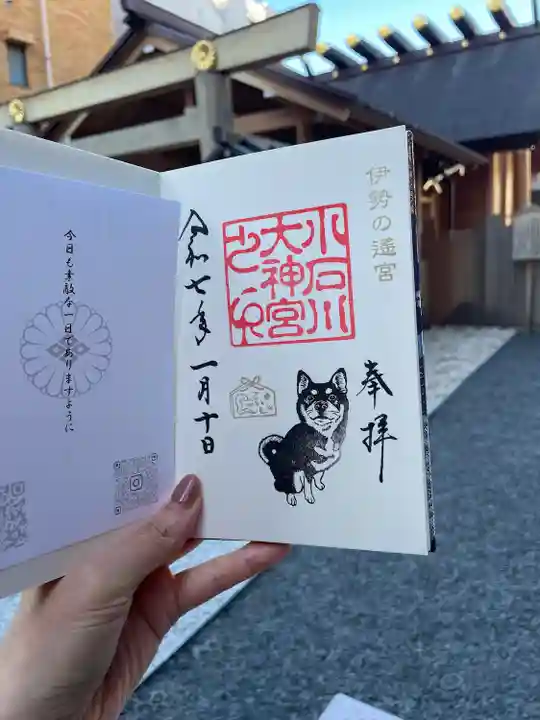 伊勢の遙宮
奉拝
小石川
大神宮
之印
令和七年 一月十日
今日も素敵な一日でありますように